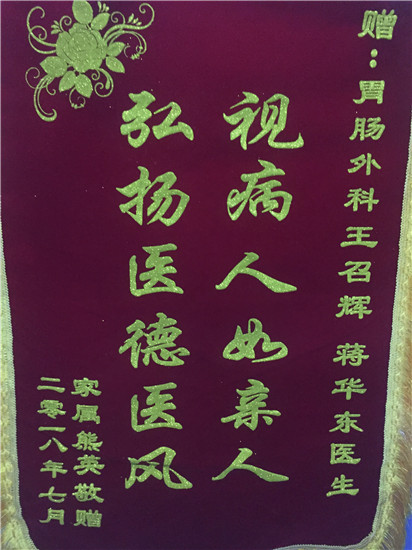 赠：胃肠外科王召辉 蒋华东医生
视病人如亲人
弘扬医德医风
家属熊英敬赠
二零一八年七月